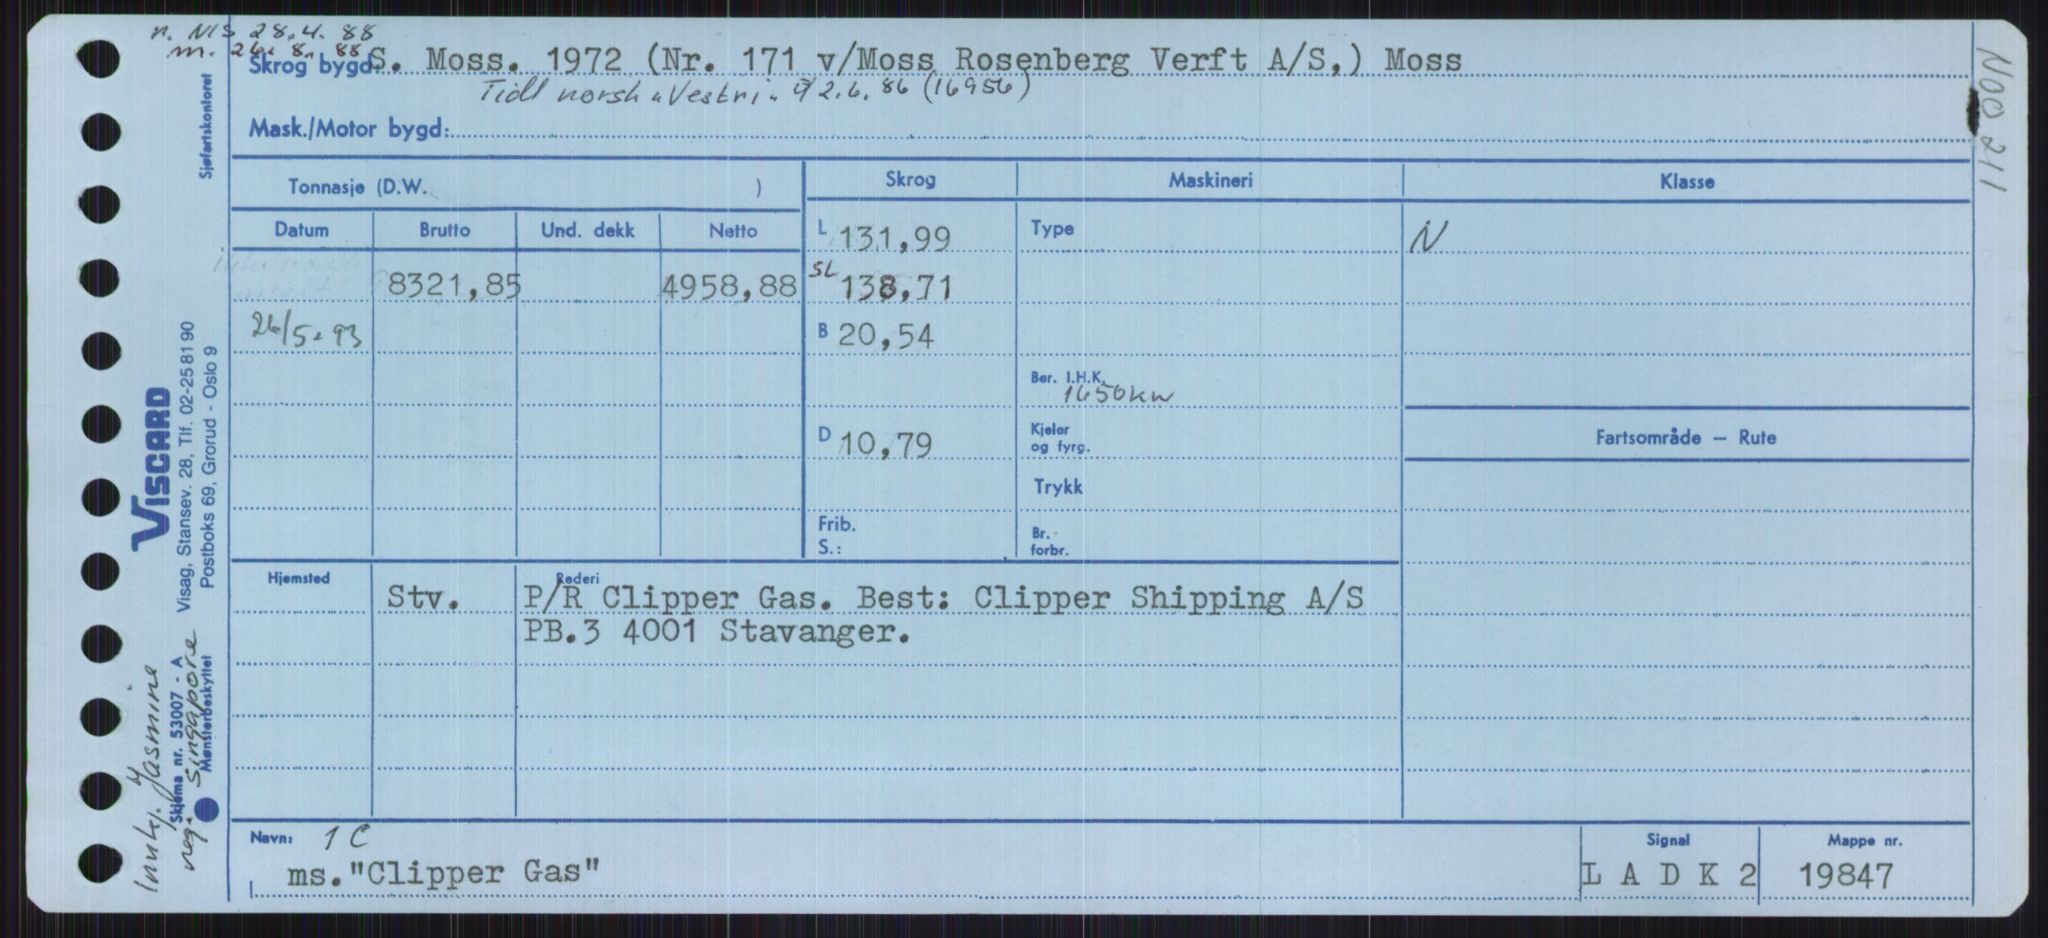 n. NIS 28.4.88
m. 26.8.88
Skrog bygd: S. Moss. 1972 (Nr. 171 v/Moss Rosenberg Verft A/S,) Moss
Tidl norsk "Vestri" 2.6.86 (16956)
Mask./Motor bygd:
N00211
Tonnasje (D.W. )
Skrog
Maskineri
Klasse
Datum Brutto Und. dekk Netto
L 131,99
Type
N
8321,85 4958,88
SL 138,71
26/5-93
B 20,54
Ber. I.H.K.
1650kw
D 10,79
Kjeler
og fyrg.
Fartsområde – Rute
Trykk
Frib.
S.:
Br.
forbr.
Hjemsted
Rederi
Stv. P/R Clipper Gas. Best: Clipper Shipping A/S
PB.3 4001 Stavanger.
Navn: 1 C
ms."Clipper Gas"
Signal
L A D K 2
Mappe nr.
19847
Sjøfartskontoret
VISCARD
Visag, Stansev. 28, Tlf. 02-25 81 90
Postboks 69, Grorud - Oslo 9
Skjema nr. 53007 - A
Mønsterbeskyttet
Jasmine
reg. Singapore